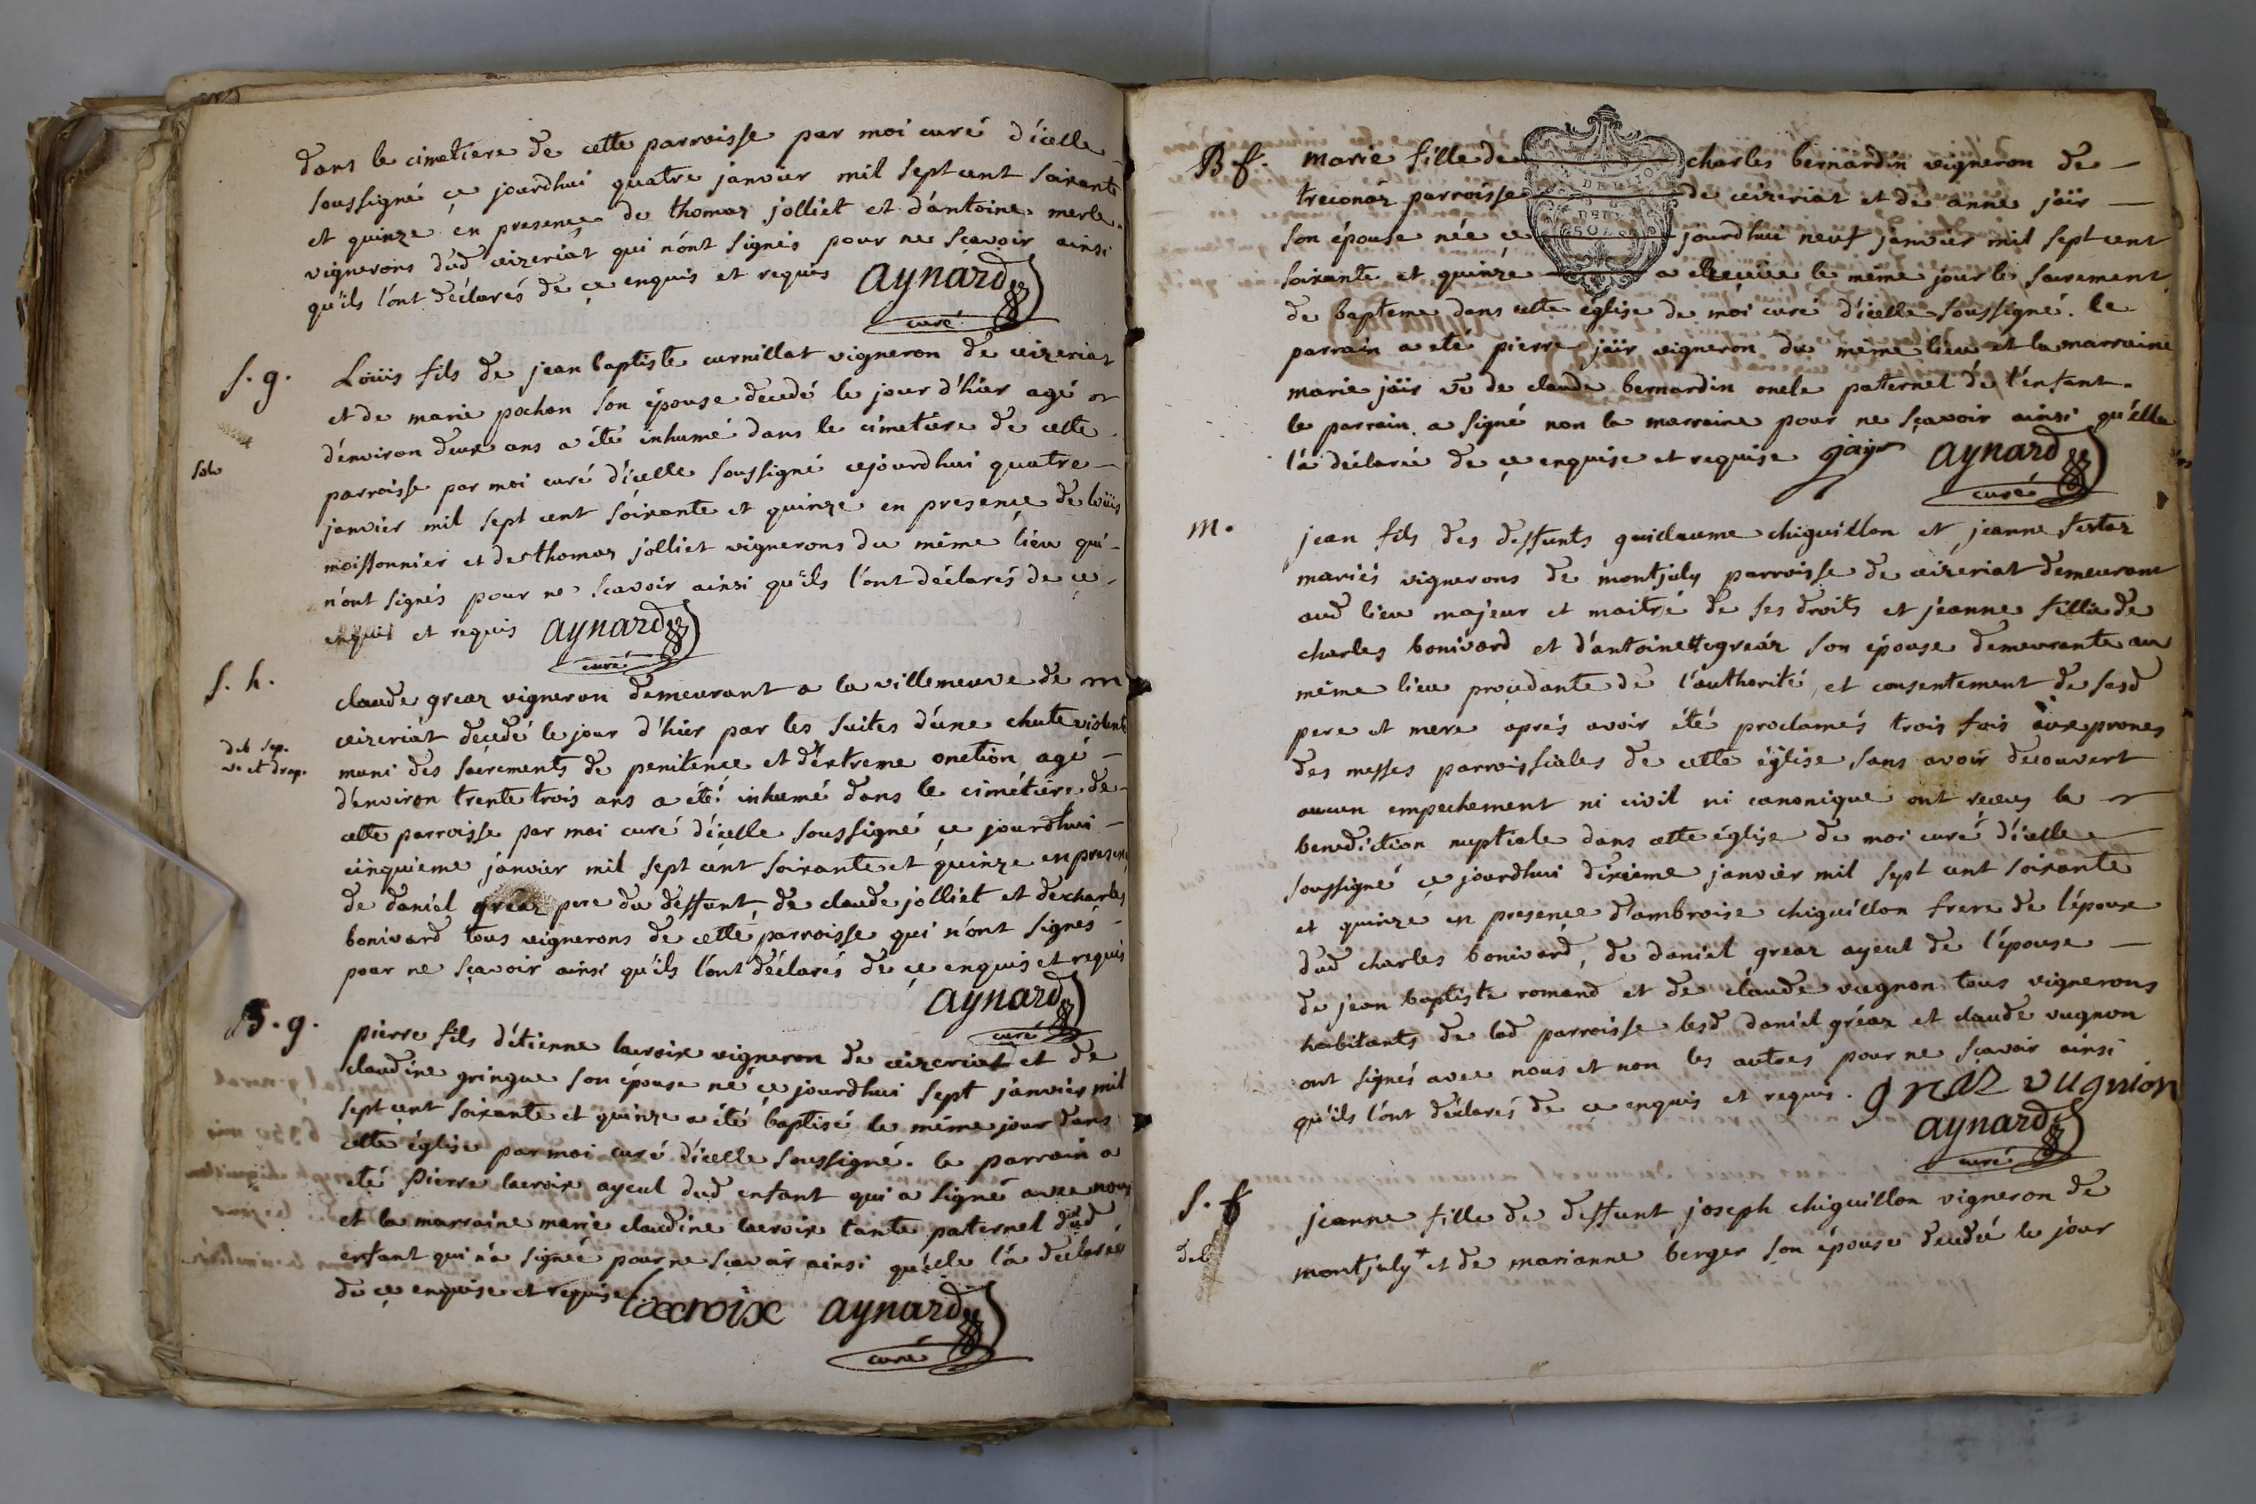 dans le cimetiere de cette parroisse par moi curé d'icelle
soussigné ce jourdhui quatre janvier mil sept cent soixante
et quinze en presence de thomas jolliet et d'antoine merle
vignerons dud ceizeriat qui n'ont signés pour ne sçavoir ainsi
qu'ils l'ont déclarés de ce enquis et requis aynard
curé
s. g. Loüis fils de jean baptiste curnillat vigneron de ceizeriat
et de marie pochon son épouse decedé le jour d'hier agé
d'environ deux ans a été inhumé dans le cimetiere de cette
parroisse par moi curé d'icelle soussigné cejourdhui quatre
janvier mil sept cent soixante et quinze en presence de loüis
moissonnier et de thomas jolliet vignerons du même lieu qui
n'ont signés pour ne scavoir ainsi qu'ils l'ont déclarés de ce
enquis et requis aynard
curé
s. h. claude greaz vigneron demeurant a la villeneuve de
ceizeriat decedé le jour d'hier par les suites d'une chute violente
muni des sacrements de penitence et d'extreme onction agé
d'environ trente trois ans a été inhumé dans le cimétiere de
cette parroisse par moi curé d'icelle soussigné ce jourdhui
cinquieme janvier mil sept cent soixante et quinze en presence
de daniel greaz pere du deffunt de claude jolliet et de charles
bonivard tous vignerons de cette parroisse qui n'ont signés
pour ne sçavoir ainsi qu'ils l'ont déclarés de ce enquis et requis
aynard
curé
B. g. pierre fils d'étienne lacroix vigneron de ceizeriat et de
claudine gringue son épouse né ce jourdhui sept janvier mil
sept cent soixante et quinze a été baptisé le même jour dans
cette église par moi curé d'icelle soussigné. le parrain a
eté pierre lacroix ayeul dud enfant qui a signé avec nous
et la marraine marie claudine lacroix tante paternel dud
enfant qui n'a signée pour ne sçavoir ainsi qu'elle l'a déclarée
de ce enquise et requise lacroix aynard
curé
B f. marie fille de charles bernardin vigneron de
treconaz parroisse de ceizeriat et de anne jaïr
son épouse née ce jourdhui neuf janvier mil sept cent
soixante et quinze a receüe le même jour le sacrement
de bapteme dans cette église de moi curé d'icelle soussigné. le
parrain a été pierre jaïr vigneron du même lieu et la marraine
marie jaïr ve de claude bernardin oncle paternel de l'enfant.
le parrain a signé non la marraine pour ne sçavoir ainsi qu'elle
l'a déclarée de ce enquise et requise jayr aynard
curé
m. jean fils des deffunts guillaume chiguillon et jeanne
mariés vignerons de montjuly parroisse de ceizeriat demeurant
aud lieu majeur et maitre de ses droits et jeanne fille de
charles bonivard et d'antoinette greaz son épouse demeurante au
même lieu procedante de l'authorité et consentement de sesd
pere et mere aprés avoir été proclamés trois fois aux prones
des messes parroissiales de cette église sans avoir decouvert
aucun empechement ni civil ni canonique ont receus la
benediction nuptiale dans cette église de moi curé d'icelle
soussigné ce jourdhui dixieme janvier mil sept cent soixante
et quinze en presence d'ambroise chiguillon frere de l'époux
dud charles bonivard, de daniel greaz ayeul de l'épouse
de jean baptiste romand et de claude vugnon tous vignerons
habitants de lad parroisse lesd daniel gréaz et claude vugnon
ont signés avec nous et non les autres pour ne sçavoir ainsi
qu'ils l'ont déclarés de ce enquis et requis. greaz vugnion
aynard
curé
s. f jeanne fille de deffunt joseph chiguillon vigneron de
montjuly + et de marianne berger son épouse decedée le jour